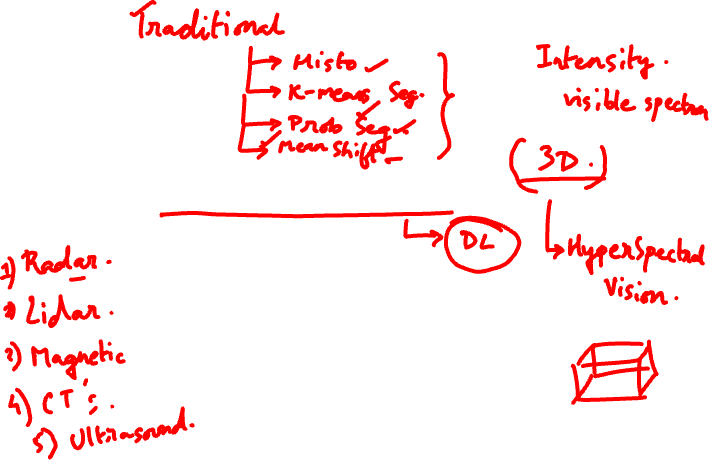 Traditional
Histo
K-means Seg.
Prob Seg.
Mean Shift
Intensity.
visible spectra
(3D.)
DL
HyperSpectral
Vision.
1) Radar.
2) Lidar.
3) Magnetic
4) CT's.
5) Ultrasound.